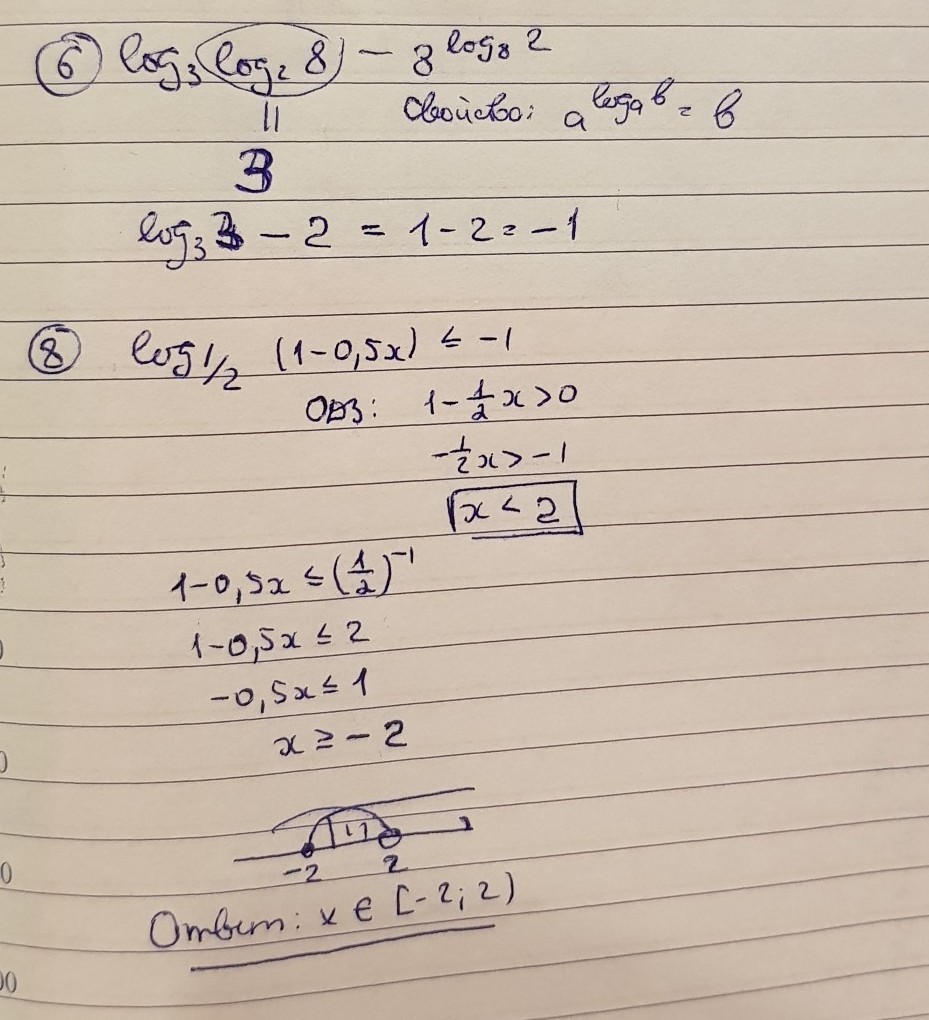 ⑥ log₃(log₂ 8) - 8^(log₈ 2)
Свойство: a^(logₐ b) = b
||
3
log₃ 3 - 2 = 1 - 2 = -1
⑧ log1/2 (1-0,5x) ≤ -1
ОДЗ: 1 - 1/2 x > 0
-1/2 x > -1
x < 2
1-0,5x ≤ (1/2)^-1
1-0,5x ≤ 2
-0,5x ≤ 1
x ≥ -2
-2 2
Ответ: x ∈ [-2; 2)